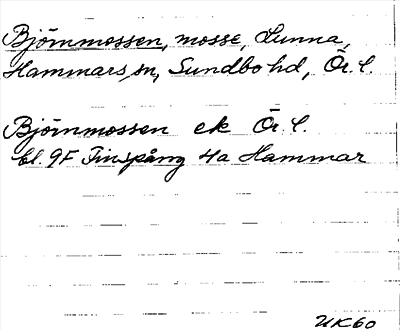 Björnmossen, mosse, Lunna,
Hammars sn, Sundbo hd, Ör. l.
Björnmossen ek Ör. l.
bl. 9F Finspång 4a Hammar
UK60